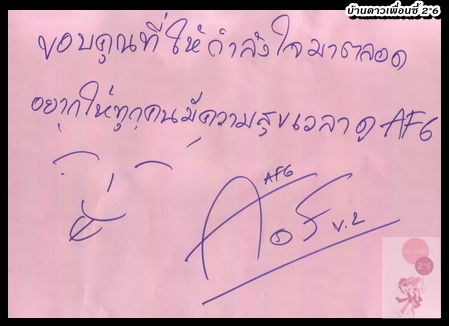 บ้านดาวเพื่อนซี้ 2*6
ขอบคุณที่ให้กำลังใจมาตลอด
อยากให้ทุกคนมีความสุขเวลาดู AF6
AF6
V.2
2*6